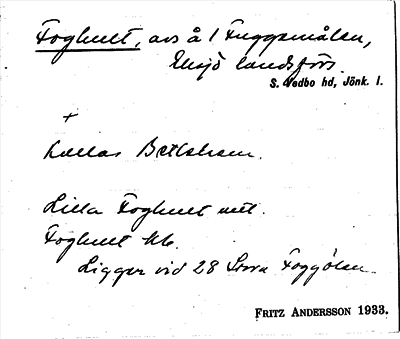 Foghult, avs å 1 Fuggemålen,
Eksjö landsförs.
S. Vedbo hd, Jönk. l.
+
kallas Betlehem.
Lilla Foghult utt.
Foghult kb.
Ligger vid 28 Stora Foggölen.
FRITZ ANDERSSON 1933.